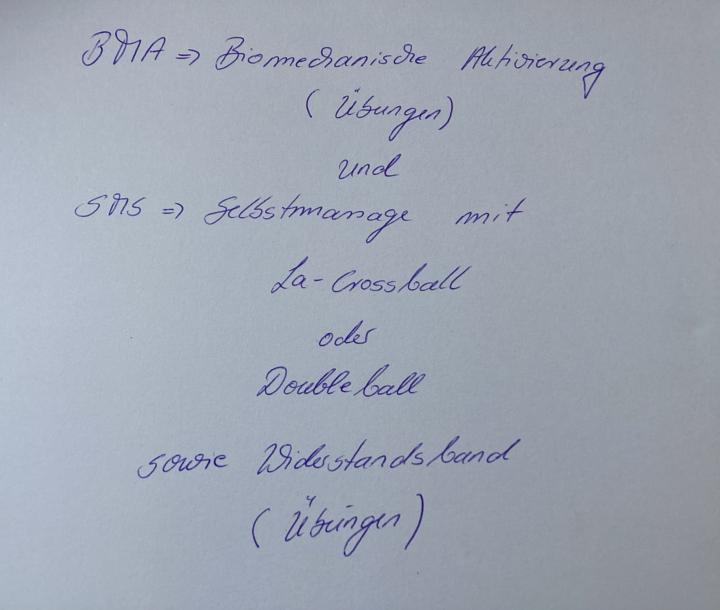 BMA => Biomechanische Aktivierung
(Übungen)
und
SMS => Selbstmassage mit
La-Crossball
oder
Doubleball
sowie Widerstandsband
(Übungen)